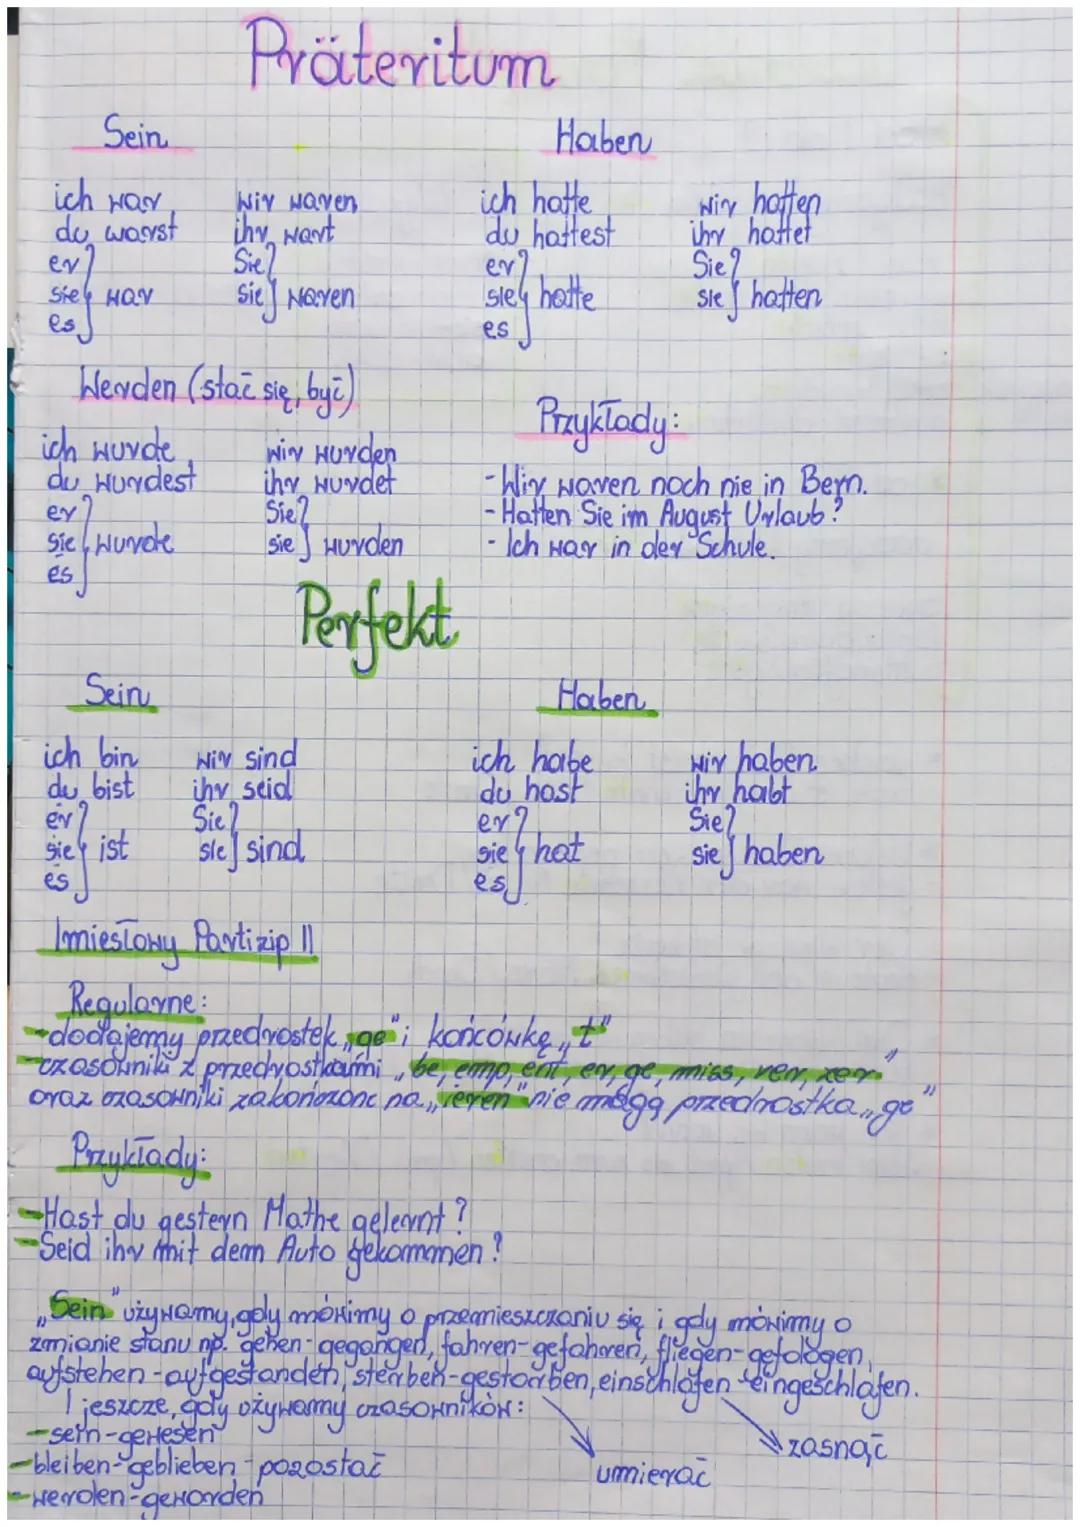 Präteritum
Sein
ich war wir waren
du warst ihr wart
er Sie
sie war sie waren
es
Haben
ich hatte wir hatten
du hattest ihr hattet
er Sie
sie hatte sie hatten
es
Werden (stać się, być)
ich wurde wir wurden
du wurdest ihr wurdet
er Sie
sie wurde sie wurden
es
Przykłady:
- Wir waren noch nie in Bern.
- Hatten Sie im August Urlaub?
- Ich war in der Schule.
Perfekt
Sein
ich bin wir sind
du bist ihr seid
er Sie
sie ist sie sind
es
Haben
ich habe wir haben
du hast ihr habt
er Sie
sie hat sie haben
es
Imiesłowy Partizip II
Regularne:
- dodajemy przedrostek „ge" i końcówkę „t"
- czasowniki z przedrostkami „be, emp, ent, er, ge, miss, ver, zer"
oraz czasowniki zakończone na „ieren" nie mają przedrostka „ge"
Przykłady:
- Hast du gestern Mathe gelernt?
- Seid ihr mit dem Auto gekommen?
„Sein" używamy, gdy mówimy o przemieszczaniu się i gdy mówimy o
zmianie stanu np. gehen - gegangen, fahren - gefahren, fliegen - gefologen,
aufstehen - aufgestanden, sterben - gestorben, einschlafen - eingeschlafen.
I jeszcze, gdy używamy czasowników:
- sein - gewesen
zasnąć
- bleiben - geblieben - pozostać
umierać
- werden - geworden